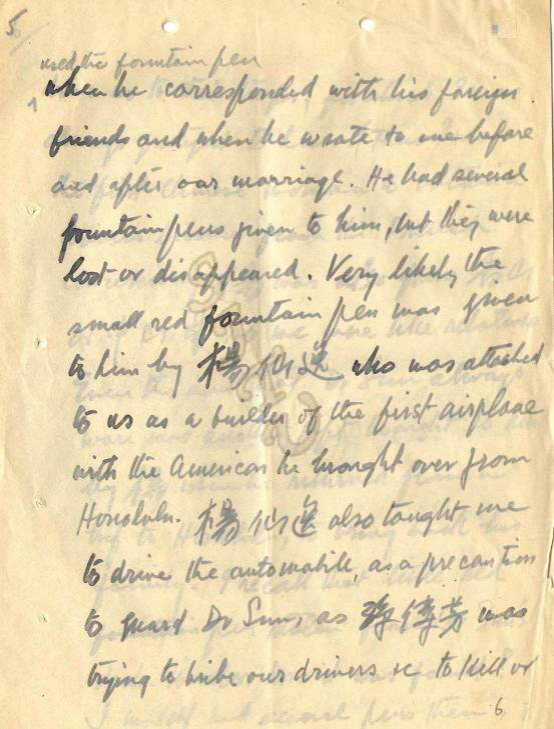 5
used the fountain pen
when he corresponded with his foreign
friends and when he wrote to me before
and after our marriage. He had several
fountain pens given to him, but they were
lost or disappeared. Very likely the
small red fountain pen was given
to him by 楊仙逸 who was attached
to us as a builder of the first airplane
with the American he brought over from
Honolulu. 楊仙逸 also taught me
to drive the automobile, as a precaution
to guard Dr Sun, as 孫傳芳 was
trying to bribe our drivers &c to kill or
6